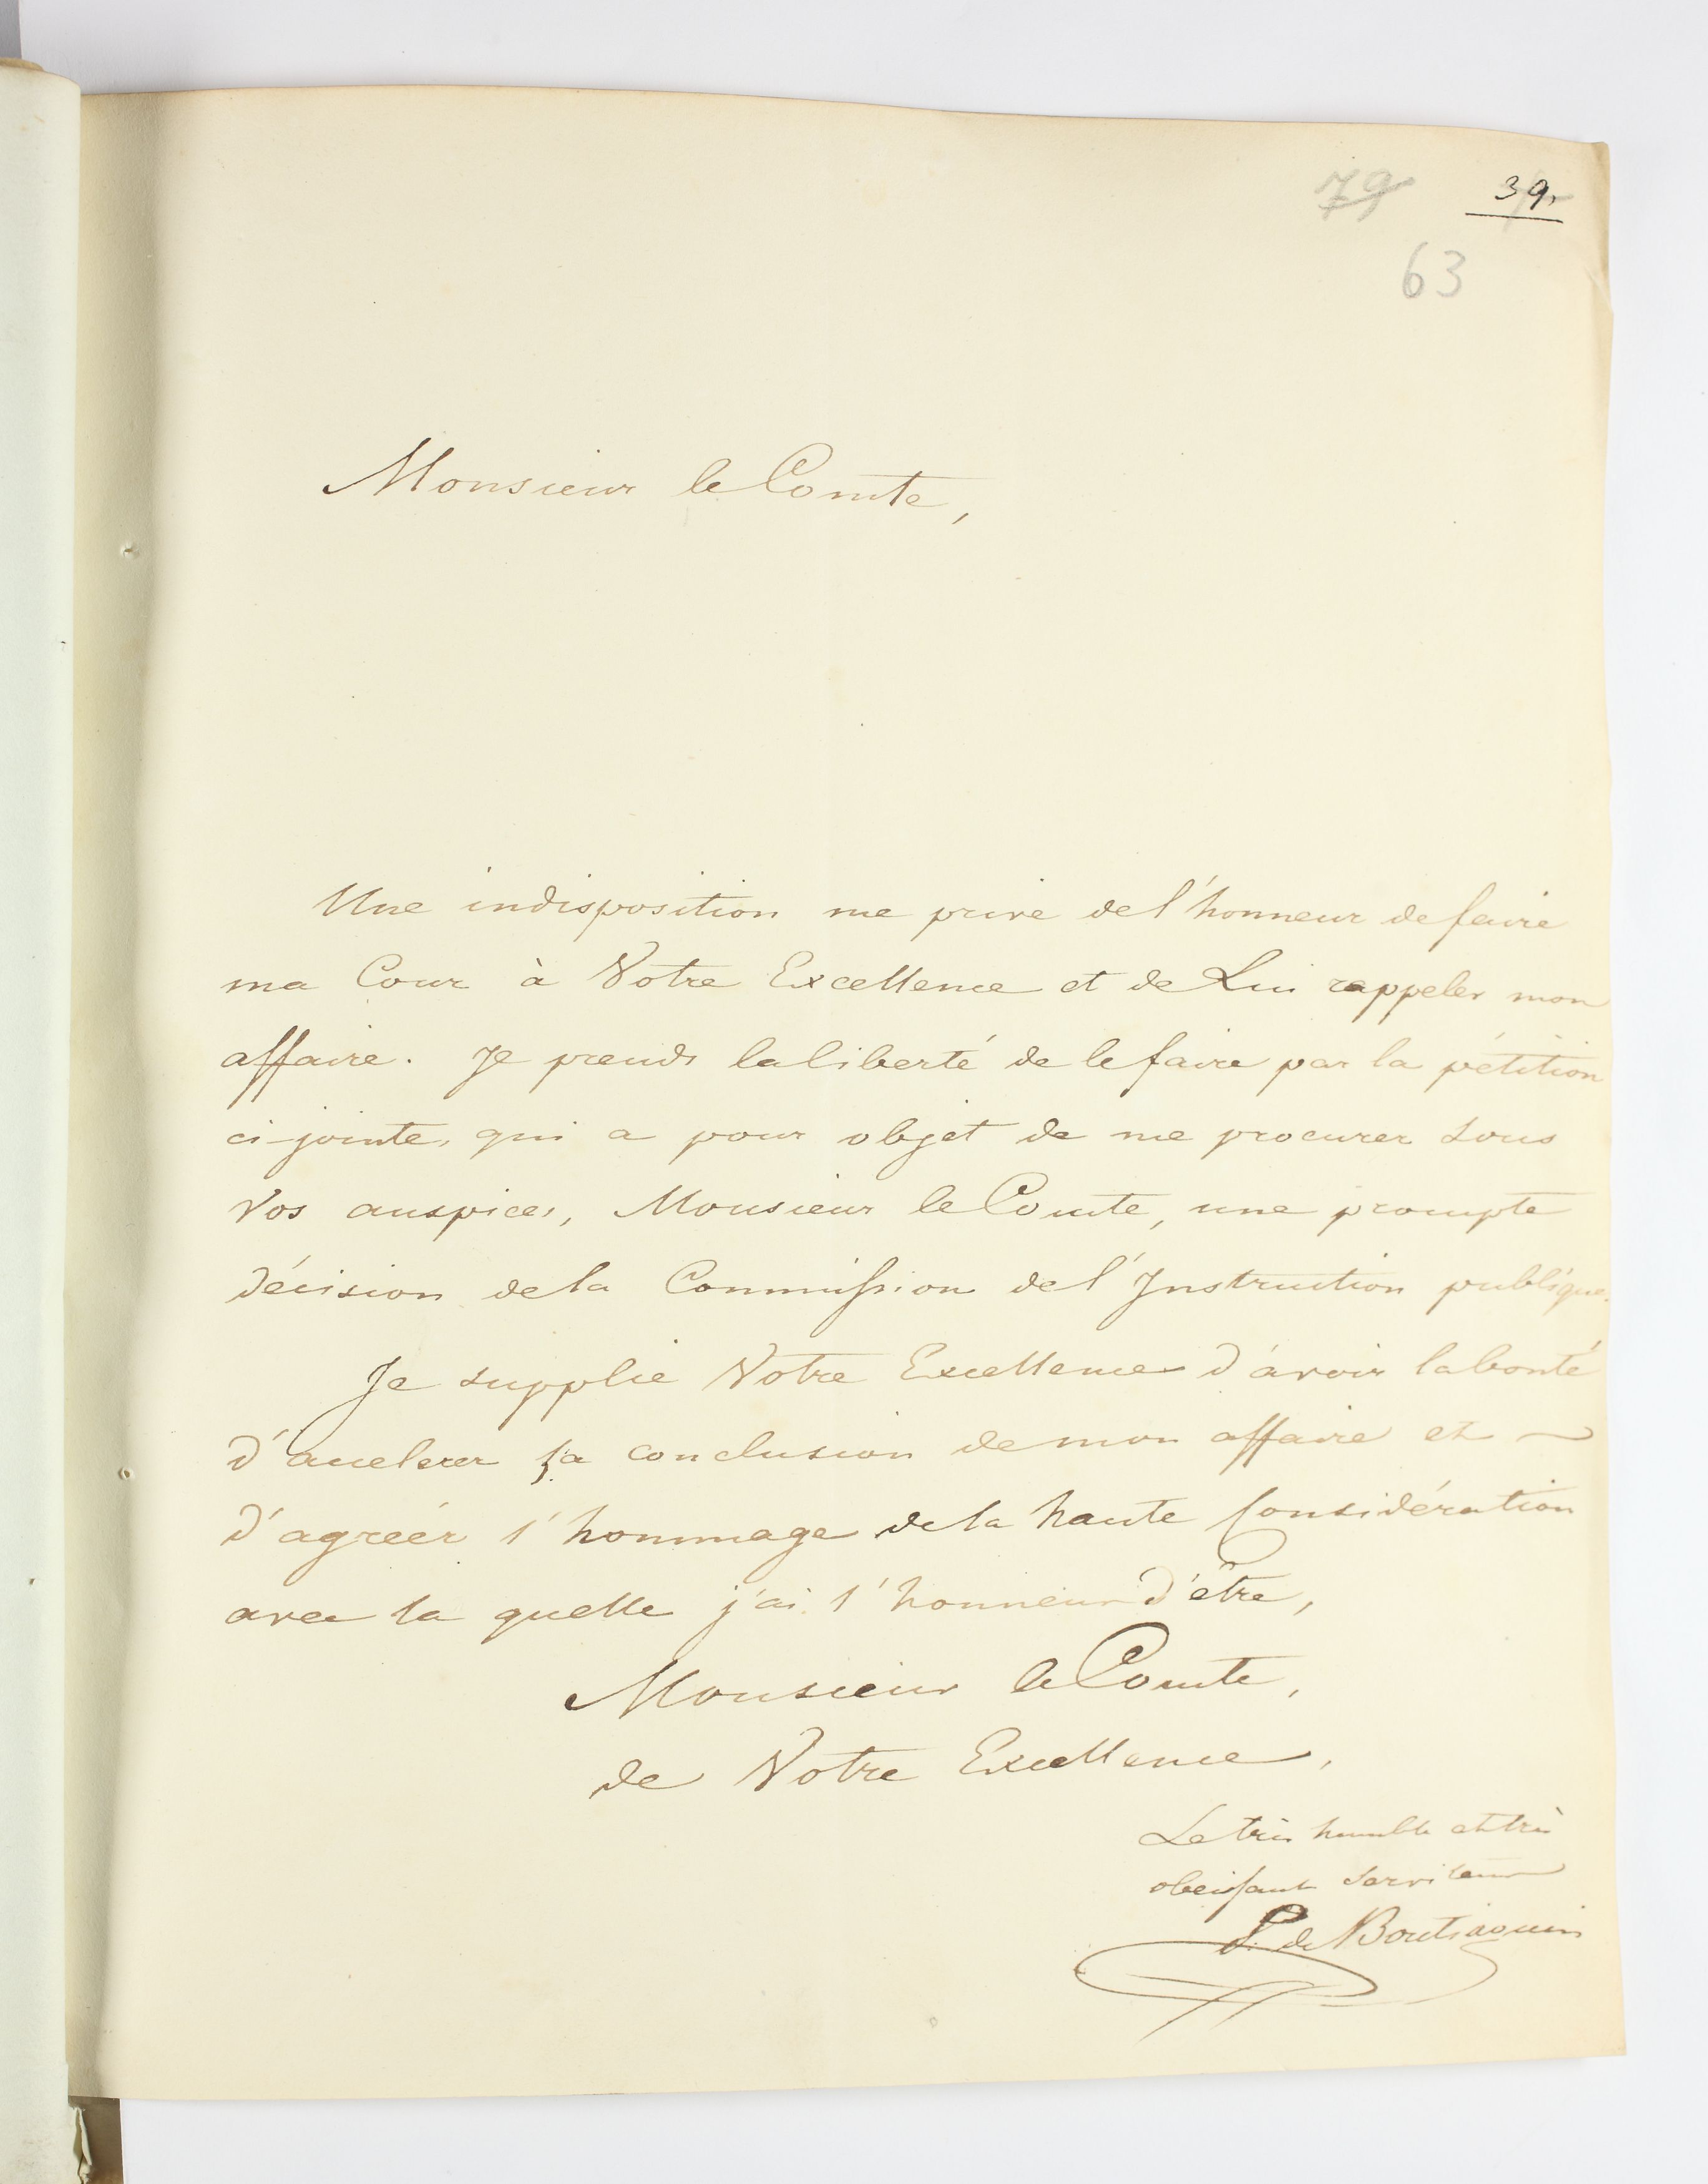 79 39.
63
Monsieur le Comte,
Une indisposition me prive de l'honneur de faire
ma Cour à Votre Excellence et de Lui rappeler mon
affaire. Je prends la liberté de le faire par la pétition
ci-jointe, qui a pour objet de me procurer sous
Vos auspices, Monsieur le Comte, une prompte
décision de la Commission de l'Instruction publique.
Je supplie Votre Excellence d'avoir la bonté
d'accelerer la conclusion de mon affaire et
d'agréér l'hommage de la haute Considération
avec la quelle j'ai l'honneur d'être,
Monsieur le Comte,
de Votre Excellence,
Le très humble et très
obeissant serviteur
P. de Boutsaguin